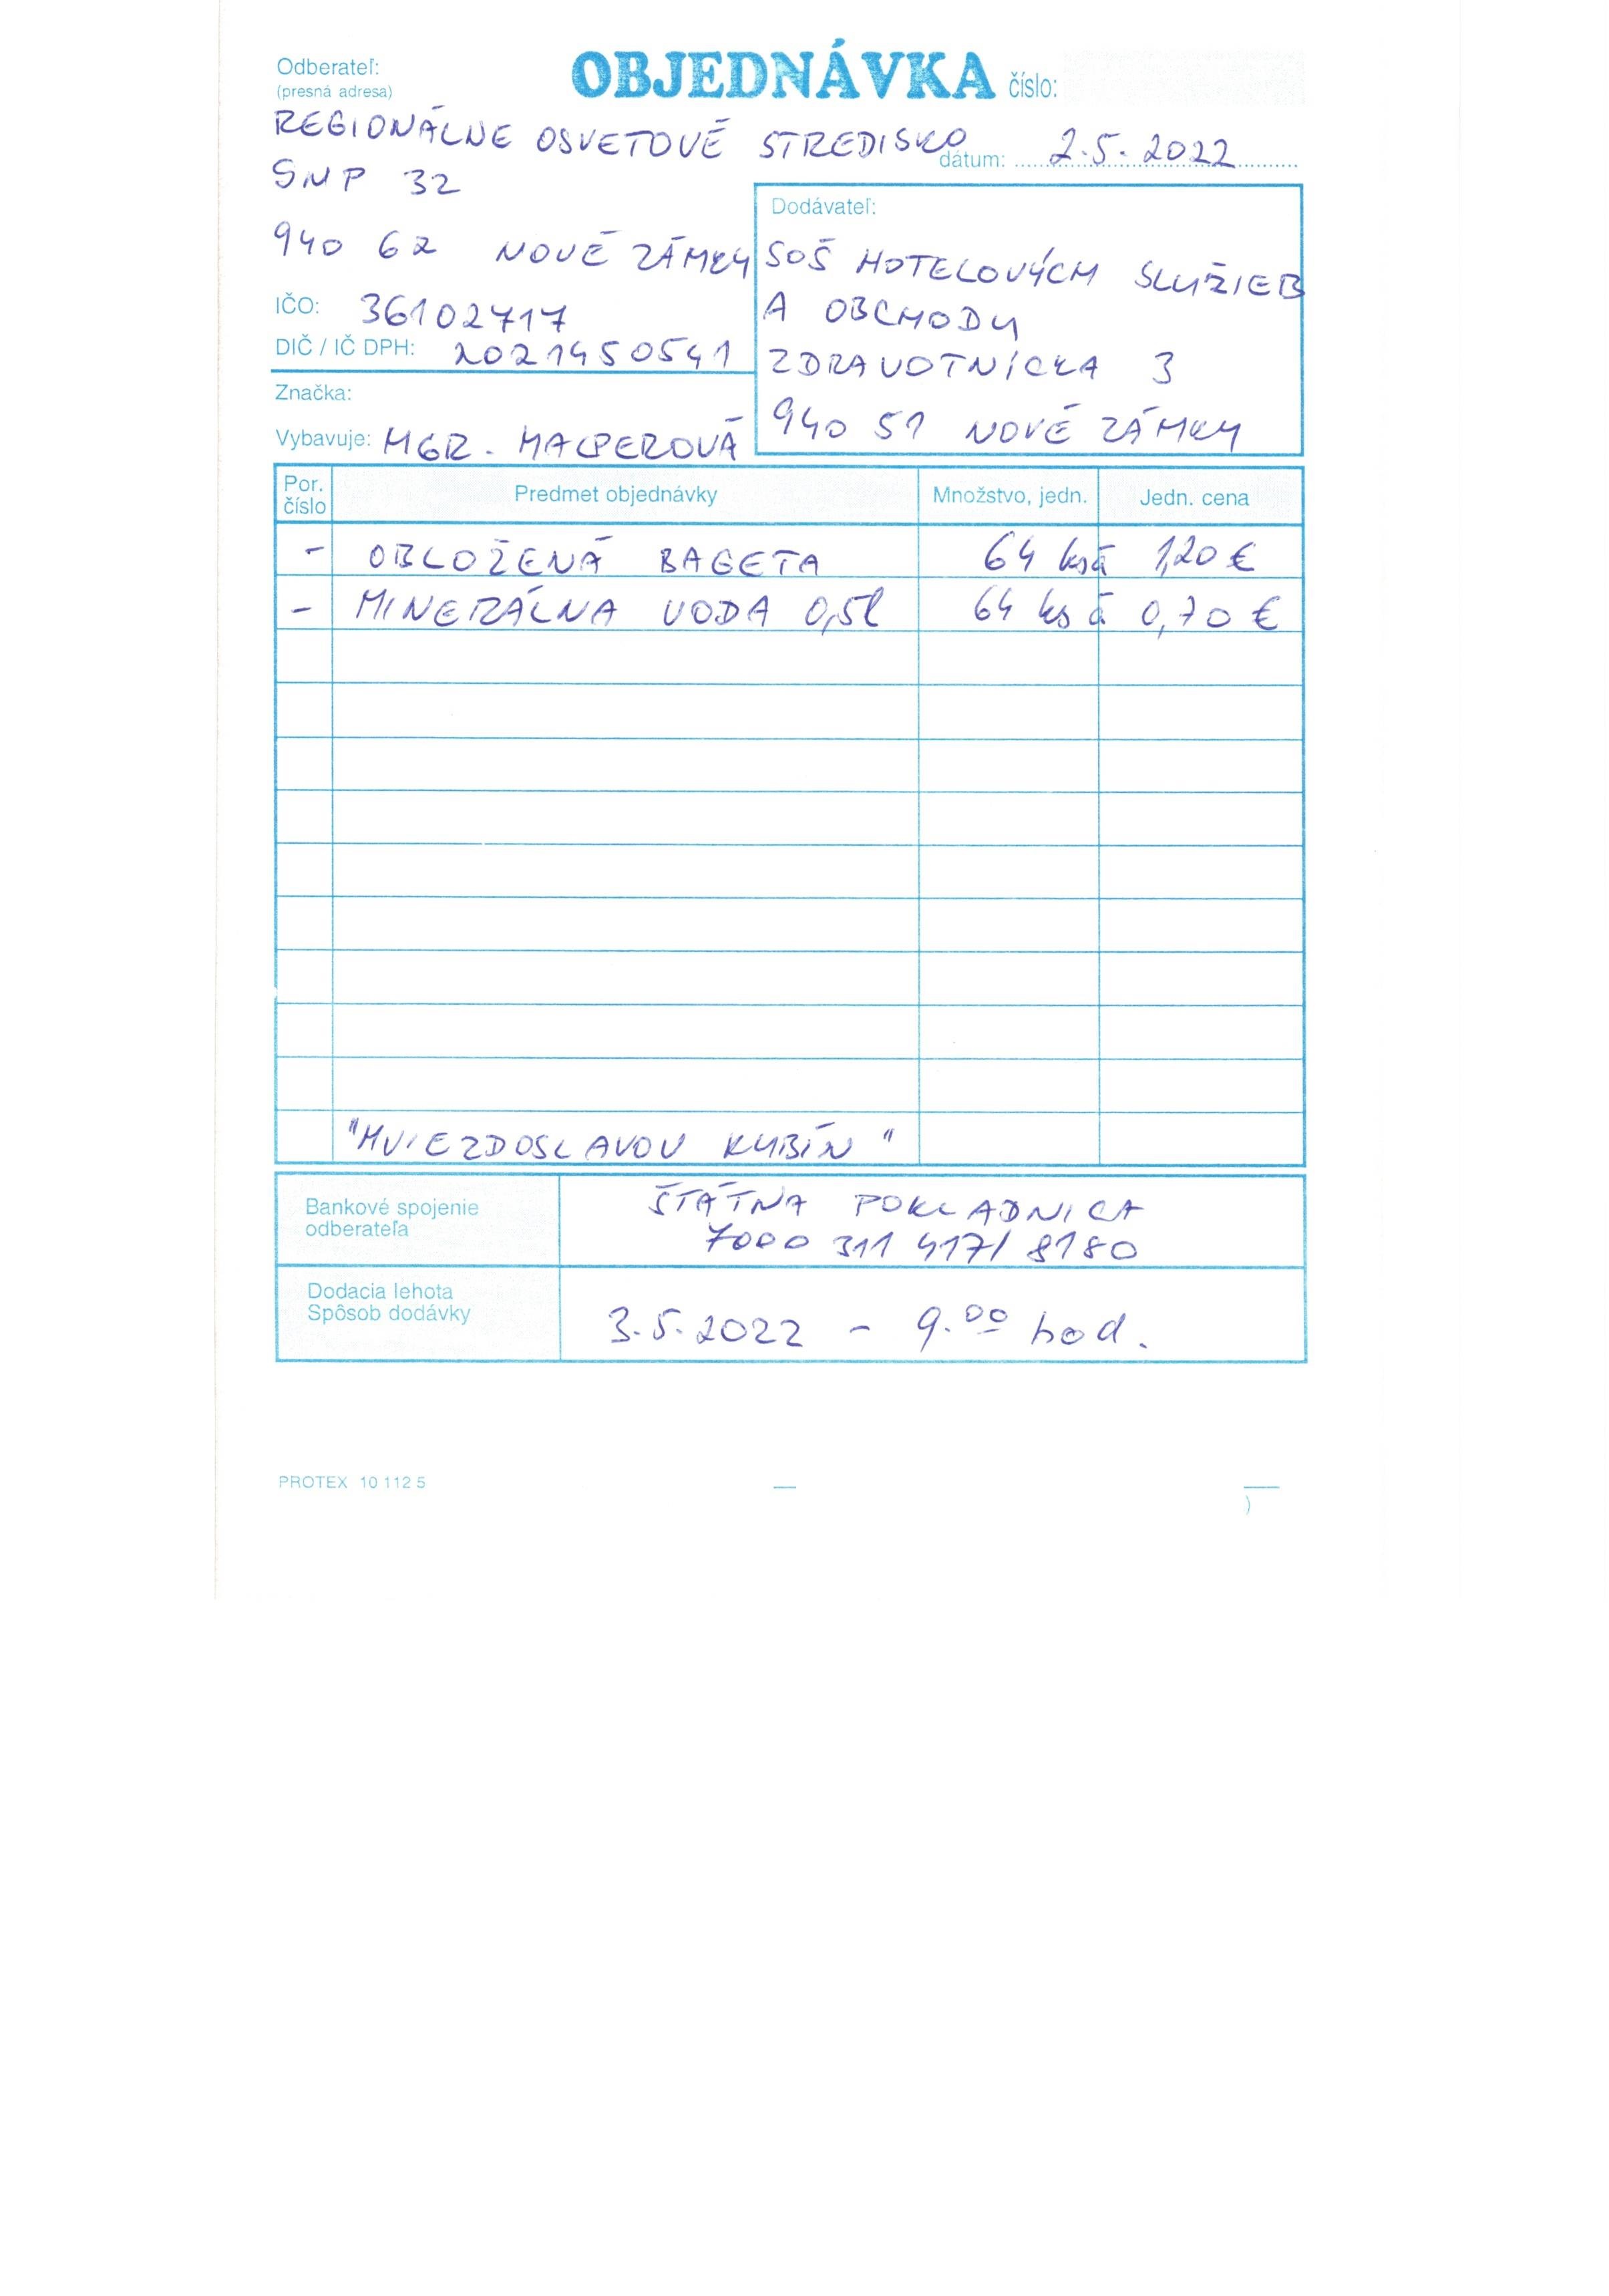 Odberateľ:
(presná adresa)
OBJEDNÁVKA číslo:
REGIONÁLNE OSVETOVÉ STREDISKO
dátum: 2.5.2022
SNP 32
940 62 NOVÉ ZÁMKY
IČO: 36102717
DIČ / IČ DPH: 2021450541
Značka:
Vybavuje: MGR. HALPEROVÁ
Dodávateľ:
SOŠ HOTELOVÝCH SLUŽIEB
A OBCHODU
ZDRAVOTNÍCKA 3
940 51 NOVÉ ZÁMKY
Por. číslo Predmet objednávky Množstvo, jedn. Jedn. cena
- OBLOŽENÁ BAGETA 64 ks á 1,20 €
- MINERÁLNA VODA 0,5l 64 ks á 0,70 €
"HVIEZDOSLAVOV KUBÍN"
Bankové spojenie
odberateľa
ŠTÁTNA POKLADNICA
7000 311 417/ 8180
Dodacia lehota
Spôsob dodávky
3.5.2022 - 9.00 hod.
PROTEX 10 112 5